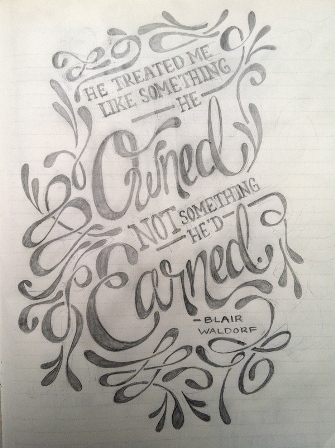 HE TREATED ME
LIKE SOMETHING
HE
Owned
NOT SOMETHING
HE'D
Earned.
-BLAIR
WALDORF